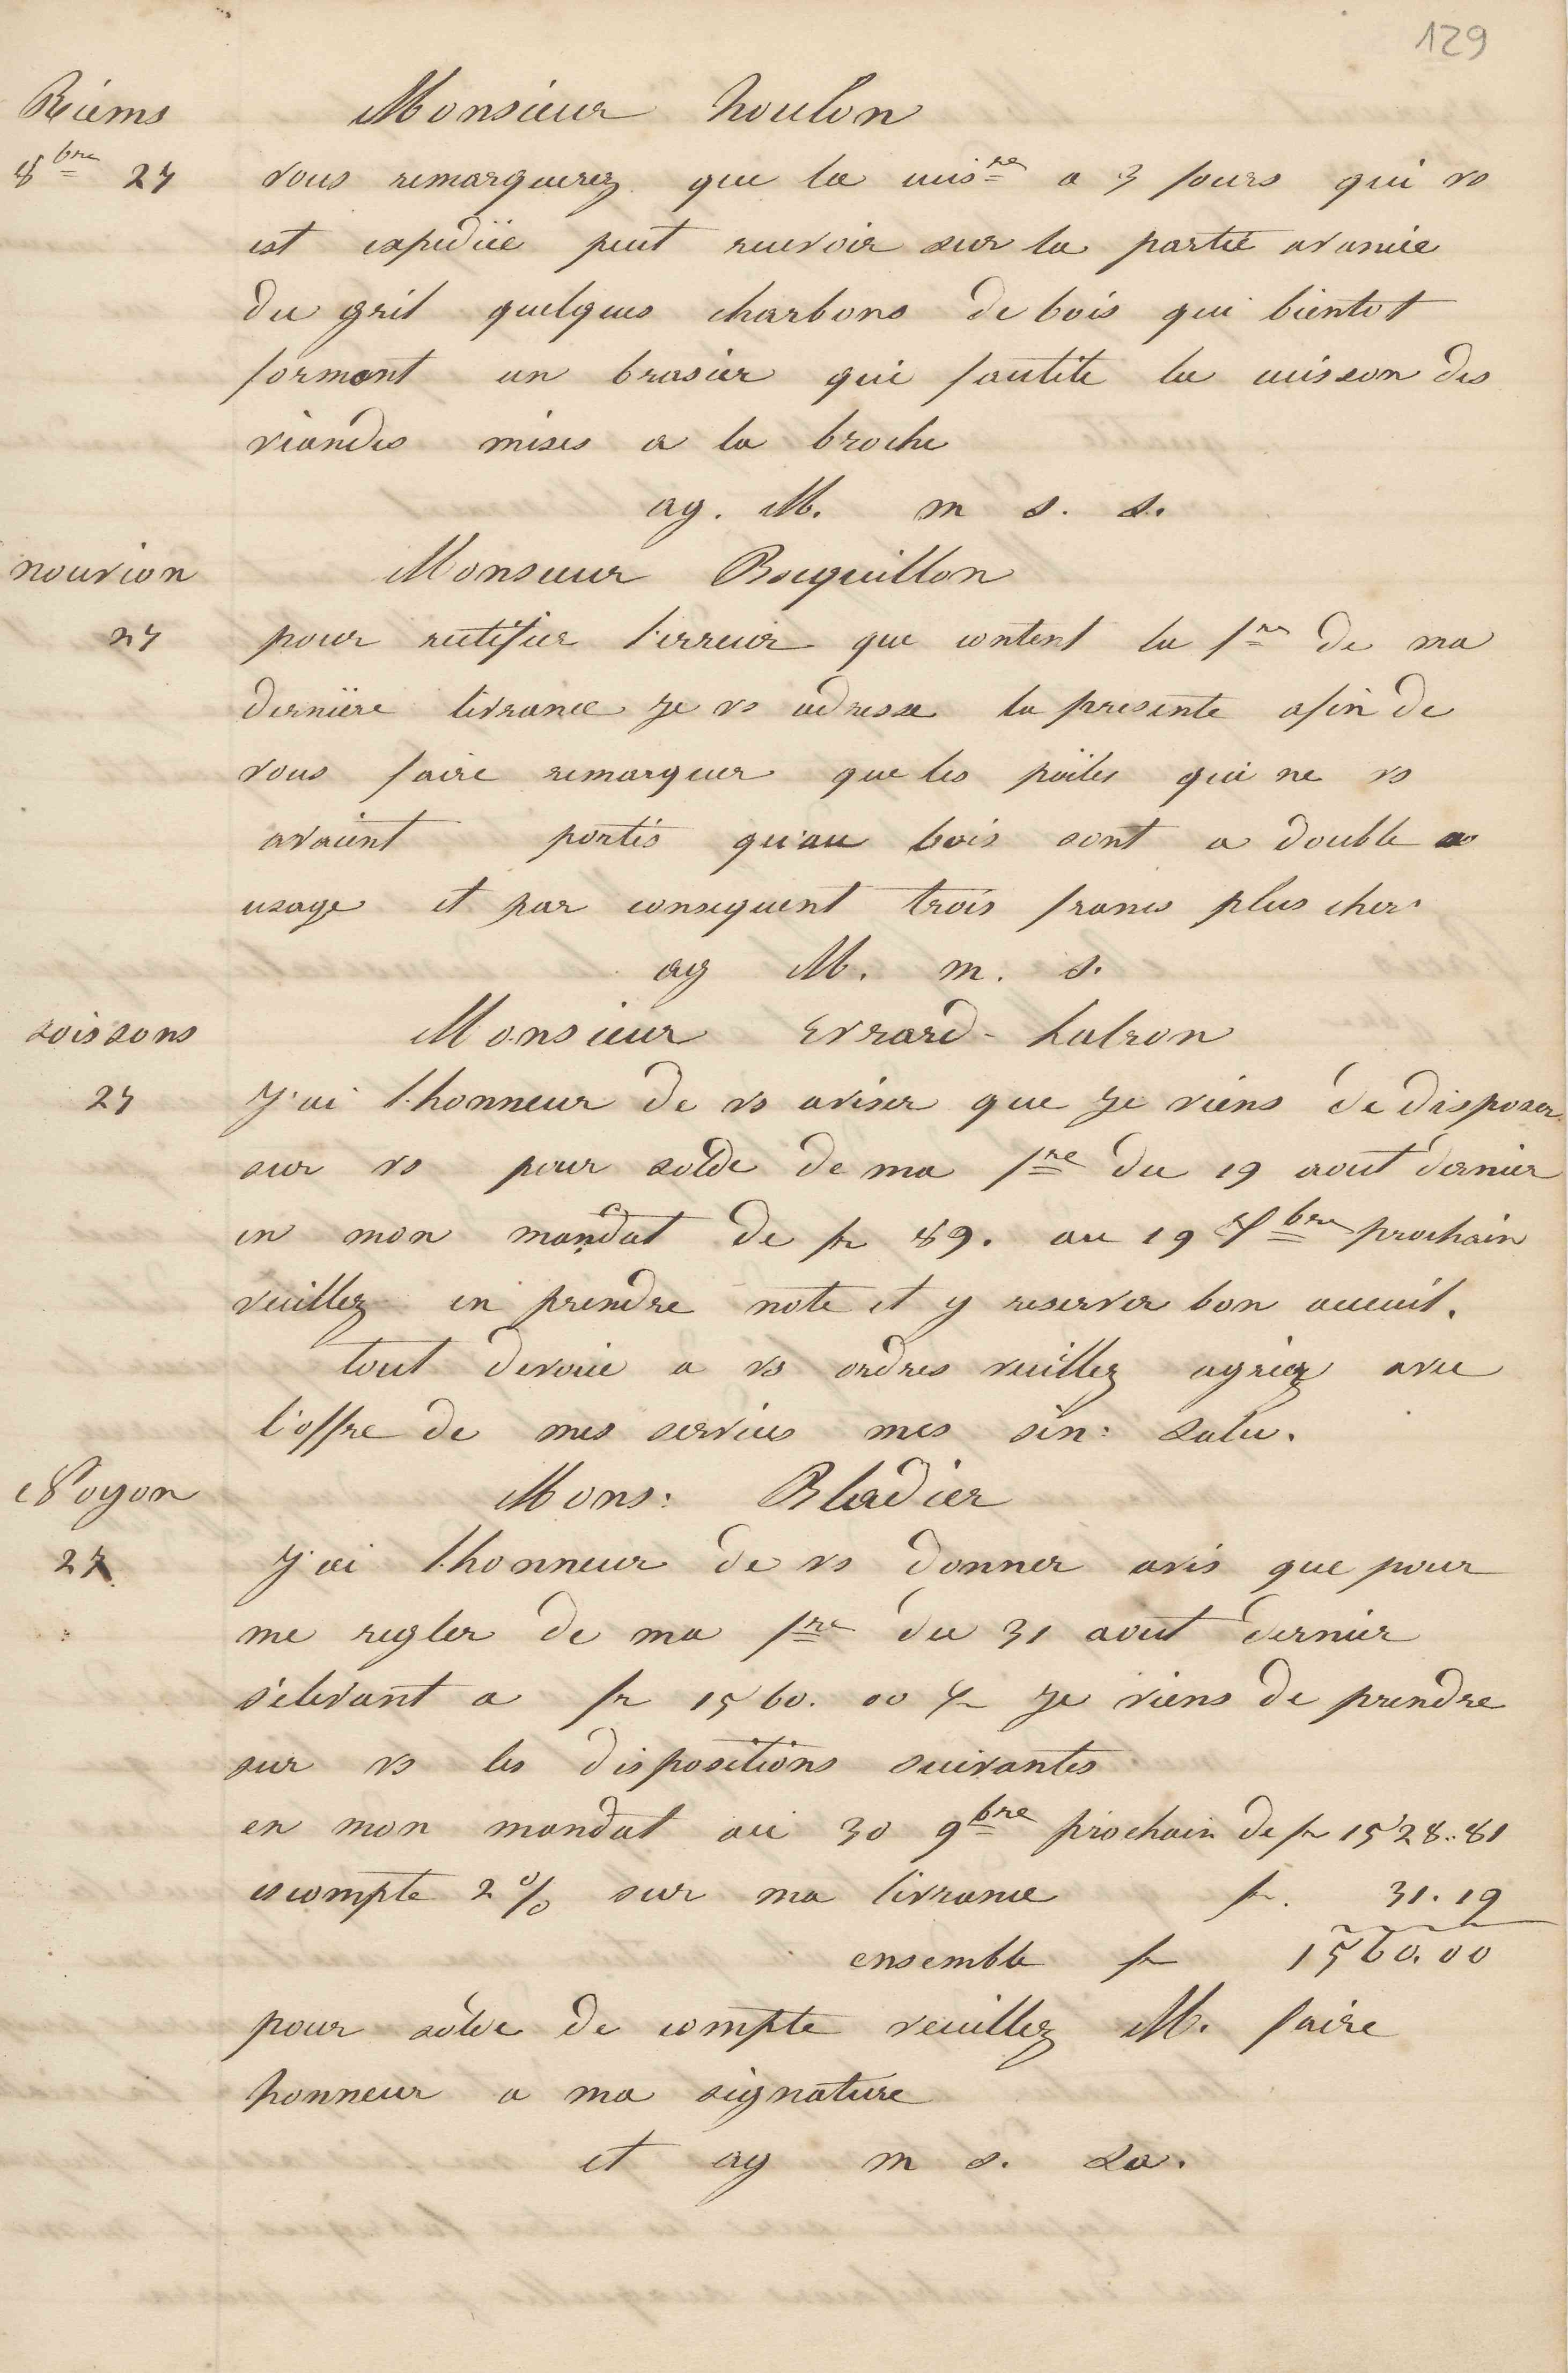 129
Reims
Monsieur Houlon
8bre 27 vous remarquerez que la cuisre a 3 fours qui vs
est expediée peut recevoir sur la partie avancée
du gril quelques charbons de bois qui bientot
forment un brasier qui facilite la cuisson des
viandes mises a la broche
ag. M. m s. s.
nouvion
Monsieur Bocquillon
27 pour rectifier l'erreur que contient la fre de ma
dernière livrance je vs adresse la presente afin de
vous faire remarquer que les poëles qui ne vs
avaient portés qu'au bois sont a double
usage et par consequent trois francs plus cher
ag M. m. s.
soissons
Monsieur Evrard-
27 J'ai l'honneur de vs aviser que je viens de disposer
sur vs pour solde de ma fre du 19 aout dernier
en mon mandat de fr 89. au 19 9bre prochain
veuillez en prendre note et y reserver bon acceuil.
tout devoué a vs ordres veuillez agréez avec
l'offre de mes services mes sin: salu.
Noyon
Mons: Bladier
27 J'ai l'honneur de vs donner avis que pour
me regler de ma fre du 31 aout dernier
s'elevant a fr 1560. 00 je viens de prendre
sur vs les dispositions suivantes
en mon mandat au 30 9bre prochain de fr 1528.81
escompte 2 % sur ma livrance fr. 31.19
ensemble fr 1560.00
pour solde de compte veuillez M. faire
honneur a ma signature
et ag m s. sa.